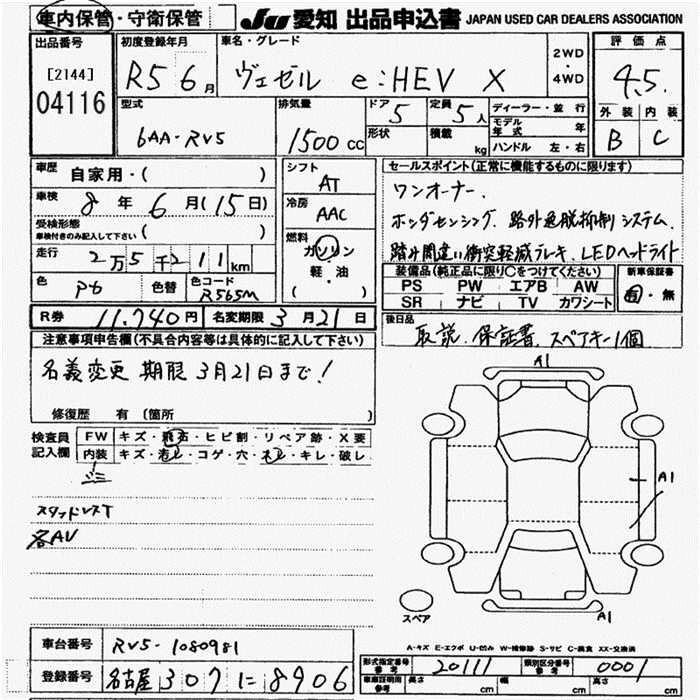 車内保管・守衛保管
JU 愛知 出品申込書 JAPAN USED CAR DEALERS ASSOCIATION
出品番号
[2144]
04116
初度登録年月
R5 6月
車名・グレード
ヴェゼル e:HEV X
2WD
・
4WD
評価点
4.5
外装 内装
B C
型式
6AA-RV5
排気量
1500 cc
ドア 5
形状
定員 5人
積載 kg
ディーラー・並行
モデル年式 年
ハンドル 左・右
車歴
自家用・( )
車検 8年 6月(15日)
受検形態
車検付きのみ記入して下さい ( )
走行 2万5千211km
色 PB 色替 色コード R565M
シフト
AT
冷房
AAC
燃料
ガソリン
軽・油
( )
セールスポイント(正常に機能するものに限ります)
ワンオーナー、
ホンダセンシング、路外逸脱抑制システム、
踏み間違い衝突軽減ブレーキ、LEDヘッドライト
装備品(純正品に限り○をつけてください)
PS PW エアB AW
SR ナビ TV カワシート
新車保証書
有・無
R券 11,740円 名変期限 3月21日
後日品
取説、保証書、スペアキー1個
注意事項申告欄(不具合内容等は具体的に記入して下さい)
名義変更 期限 3月21日まで!
修復歴 有(箇所 )
検査員
記入欄
FW キズ・飛石・ヒビ割・リペア跡・X要
内装 キズ・汚レ・コゲ・穴・ネレ・キレ・破レ
スタッドレスT
各AV
A1
A1
A1
スペア
A-キズ E-エクボ U-凹み W-補修跡 S-サビ C-腐食 XX-交換済
車台番号 RV5-1080981
登録番号 名古屋 307 に 8906
形式指定番号
参考
20111
類別区分番号
参考
0001
車庫証明用
参考
長 cm 幅 cm 高 cm